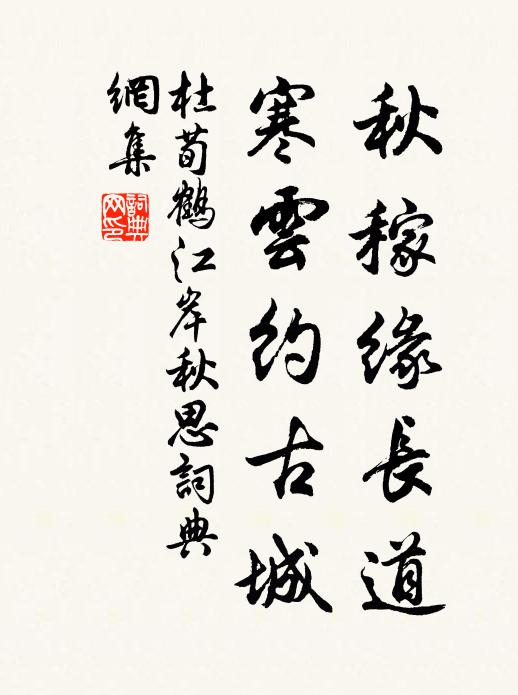 秋稼緣長道
寒雲約古城
杜荀鶴江岸秋思詞典
網集
詞典
网印